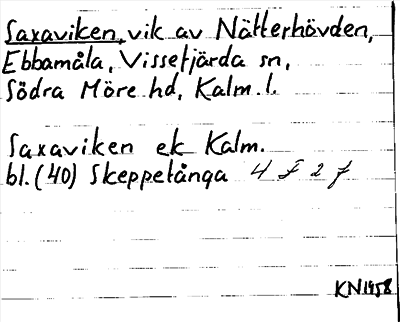 Saxaviken, vik av Nätterhövden,
Ebbamåla, Vissefjärda sn,
Södra Möre hd, Kalm. l.
Saxaviken ek Kalm.
bl. (40) Skeppetånga 4 F 2 f
KN1958